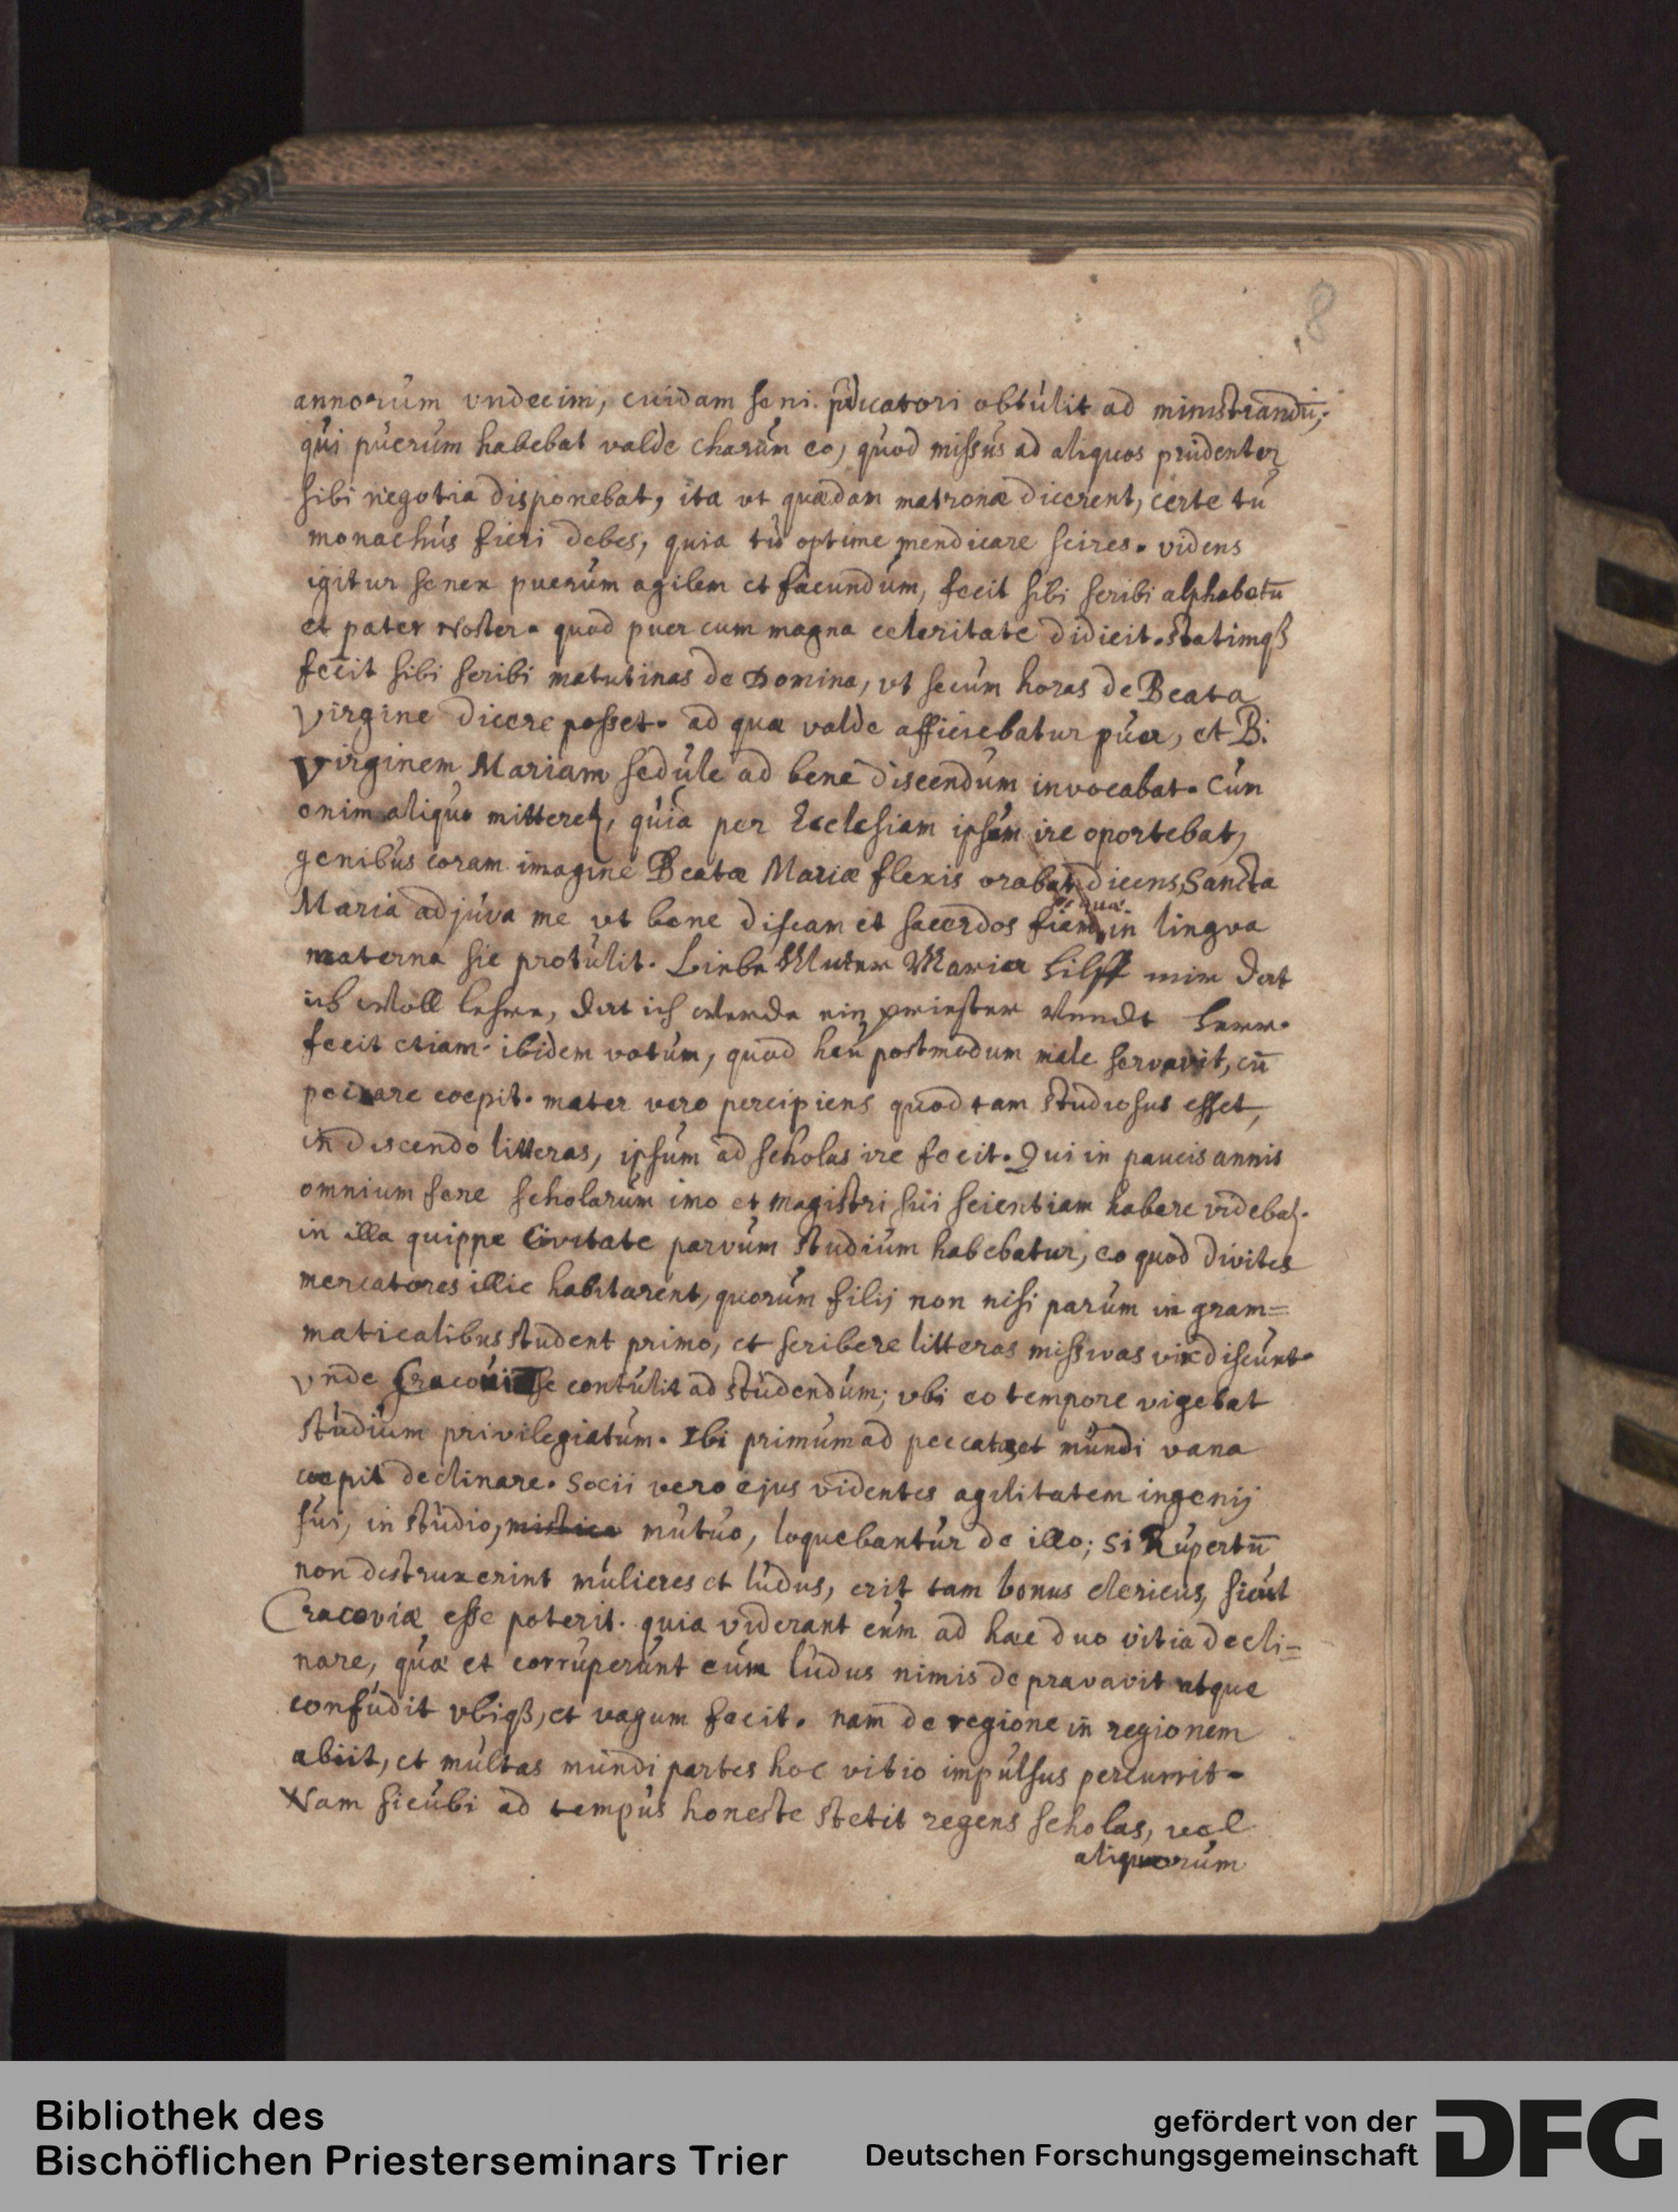 8
annorum vndecim, cuidam seni p̃dicatori obtúlit ad ministrandū;
qúi púerúm habebat valde charúm eo, qúod missús ad aliquos prúdenter
sibi negotia disponebat, ita vt quædam matronæ dicerent, certe tú
monachús fieri debes, quia tú optime mendicare scires. videns
igitur senex puerúm agilem et facundúm, fecit sibi scribi alphabetū
et pater Noster. quod puer cum magna celeritate didicit. Statimqȝ
fecit sibi scribi matutinas de Domina, vt secúm horas de Beata
Virgine dicere posset. ad quæ valde afficiebatur púer, et B.
Virginem Mariam sedúle ad bene discendúm invocabat. Cúm
enim aliquo mitteretr, quia per Ecclesiam ipsúm ire oportebat,
genibús coram imagine Beatæ Mariæ flexis orabat dicens, Sancta
Maria adjúva me vt bene discam et sacerdos fiam, quæ in lingva
materna sic protúlit. Liebe Muter Maria hilff mir dat
ich woll lehre, dat ich werde ein priester vndt herr.
fecit etiam ibidem votúm, quod heú postmodum male servavit, cū
peccare coepit. mater vero percipiens quod tam studiosus esset,
in discendo litteras, ipsúm ad scholas ire fecit. Qui in paucis annis
omnium fere scholarúm imo et magistri súi scientiam habere videbatr.
in illa quippe Civitate parvúm studiúm habebatur, eo quod divites
mercatores illic habitarent, quorúm filij non nisi parúm in gram=
maticalibus student primo, et scribere litteras missivas vix discúnt.
vnde Cracoúi se contúlit ad stúdendúm; vbi eo tempore vigebat
stúdiúm privilegiatúm. Ibi primúm ad peccata et múndi vana
coepit declinare. Socii vero ejus videntes agilitatem ingenij
súi, in stúdio, mutúo, loquebantúr de illo; si Rúpertū
non destruxerint múlieres et lúdus, erit tam bonus clericus, sicút
Cracoviæ esse poterit. quia viderant eúm ad hæc duo vitia decli=
nare, quæ et corrúperúnt eúm lúdus nimis depravavit atque
confúdit vbiqȝ, et vagum fecit. nam de regione in regionem
abiit, et múltas múndi partes hoc vitio impúlsus percurrit.
Nam sicúbi ad tempús honeste stetit regens scholas, vel
aliquorúm
Bibliothek des
Bischöflichen Priesterseminars Trier
gefördert von der
Deutschen Forschungsgemeinschaft
DFG